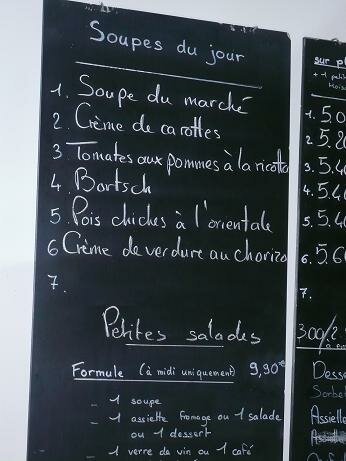 Soupes du jour
1. Soupe du marché
2. Crème de carottes
3 Tomates aux pommes à la ricotta
4. Bortsch
5. Pois chiches à l'orientale
6 Crème de verdure au chorizo
7.
Petites salades
Formule (à midi uniquement) 9,90€
- 1 soupe
- 1 assiette fromage ou 1 salade
ou 1 dessert
- 1 verre de vin ou 1 café
sur pl
+ 1 peti
1. 5.0
2. 5.20
3. 5.40
4. 5.40
5. 5.40
6. 5.60
7.
3.00/2
Desse
Sorbe
Assielle
Assielle